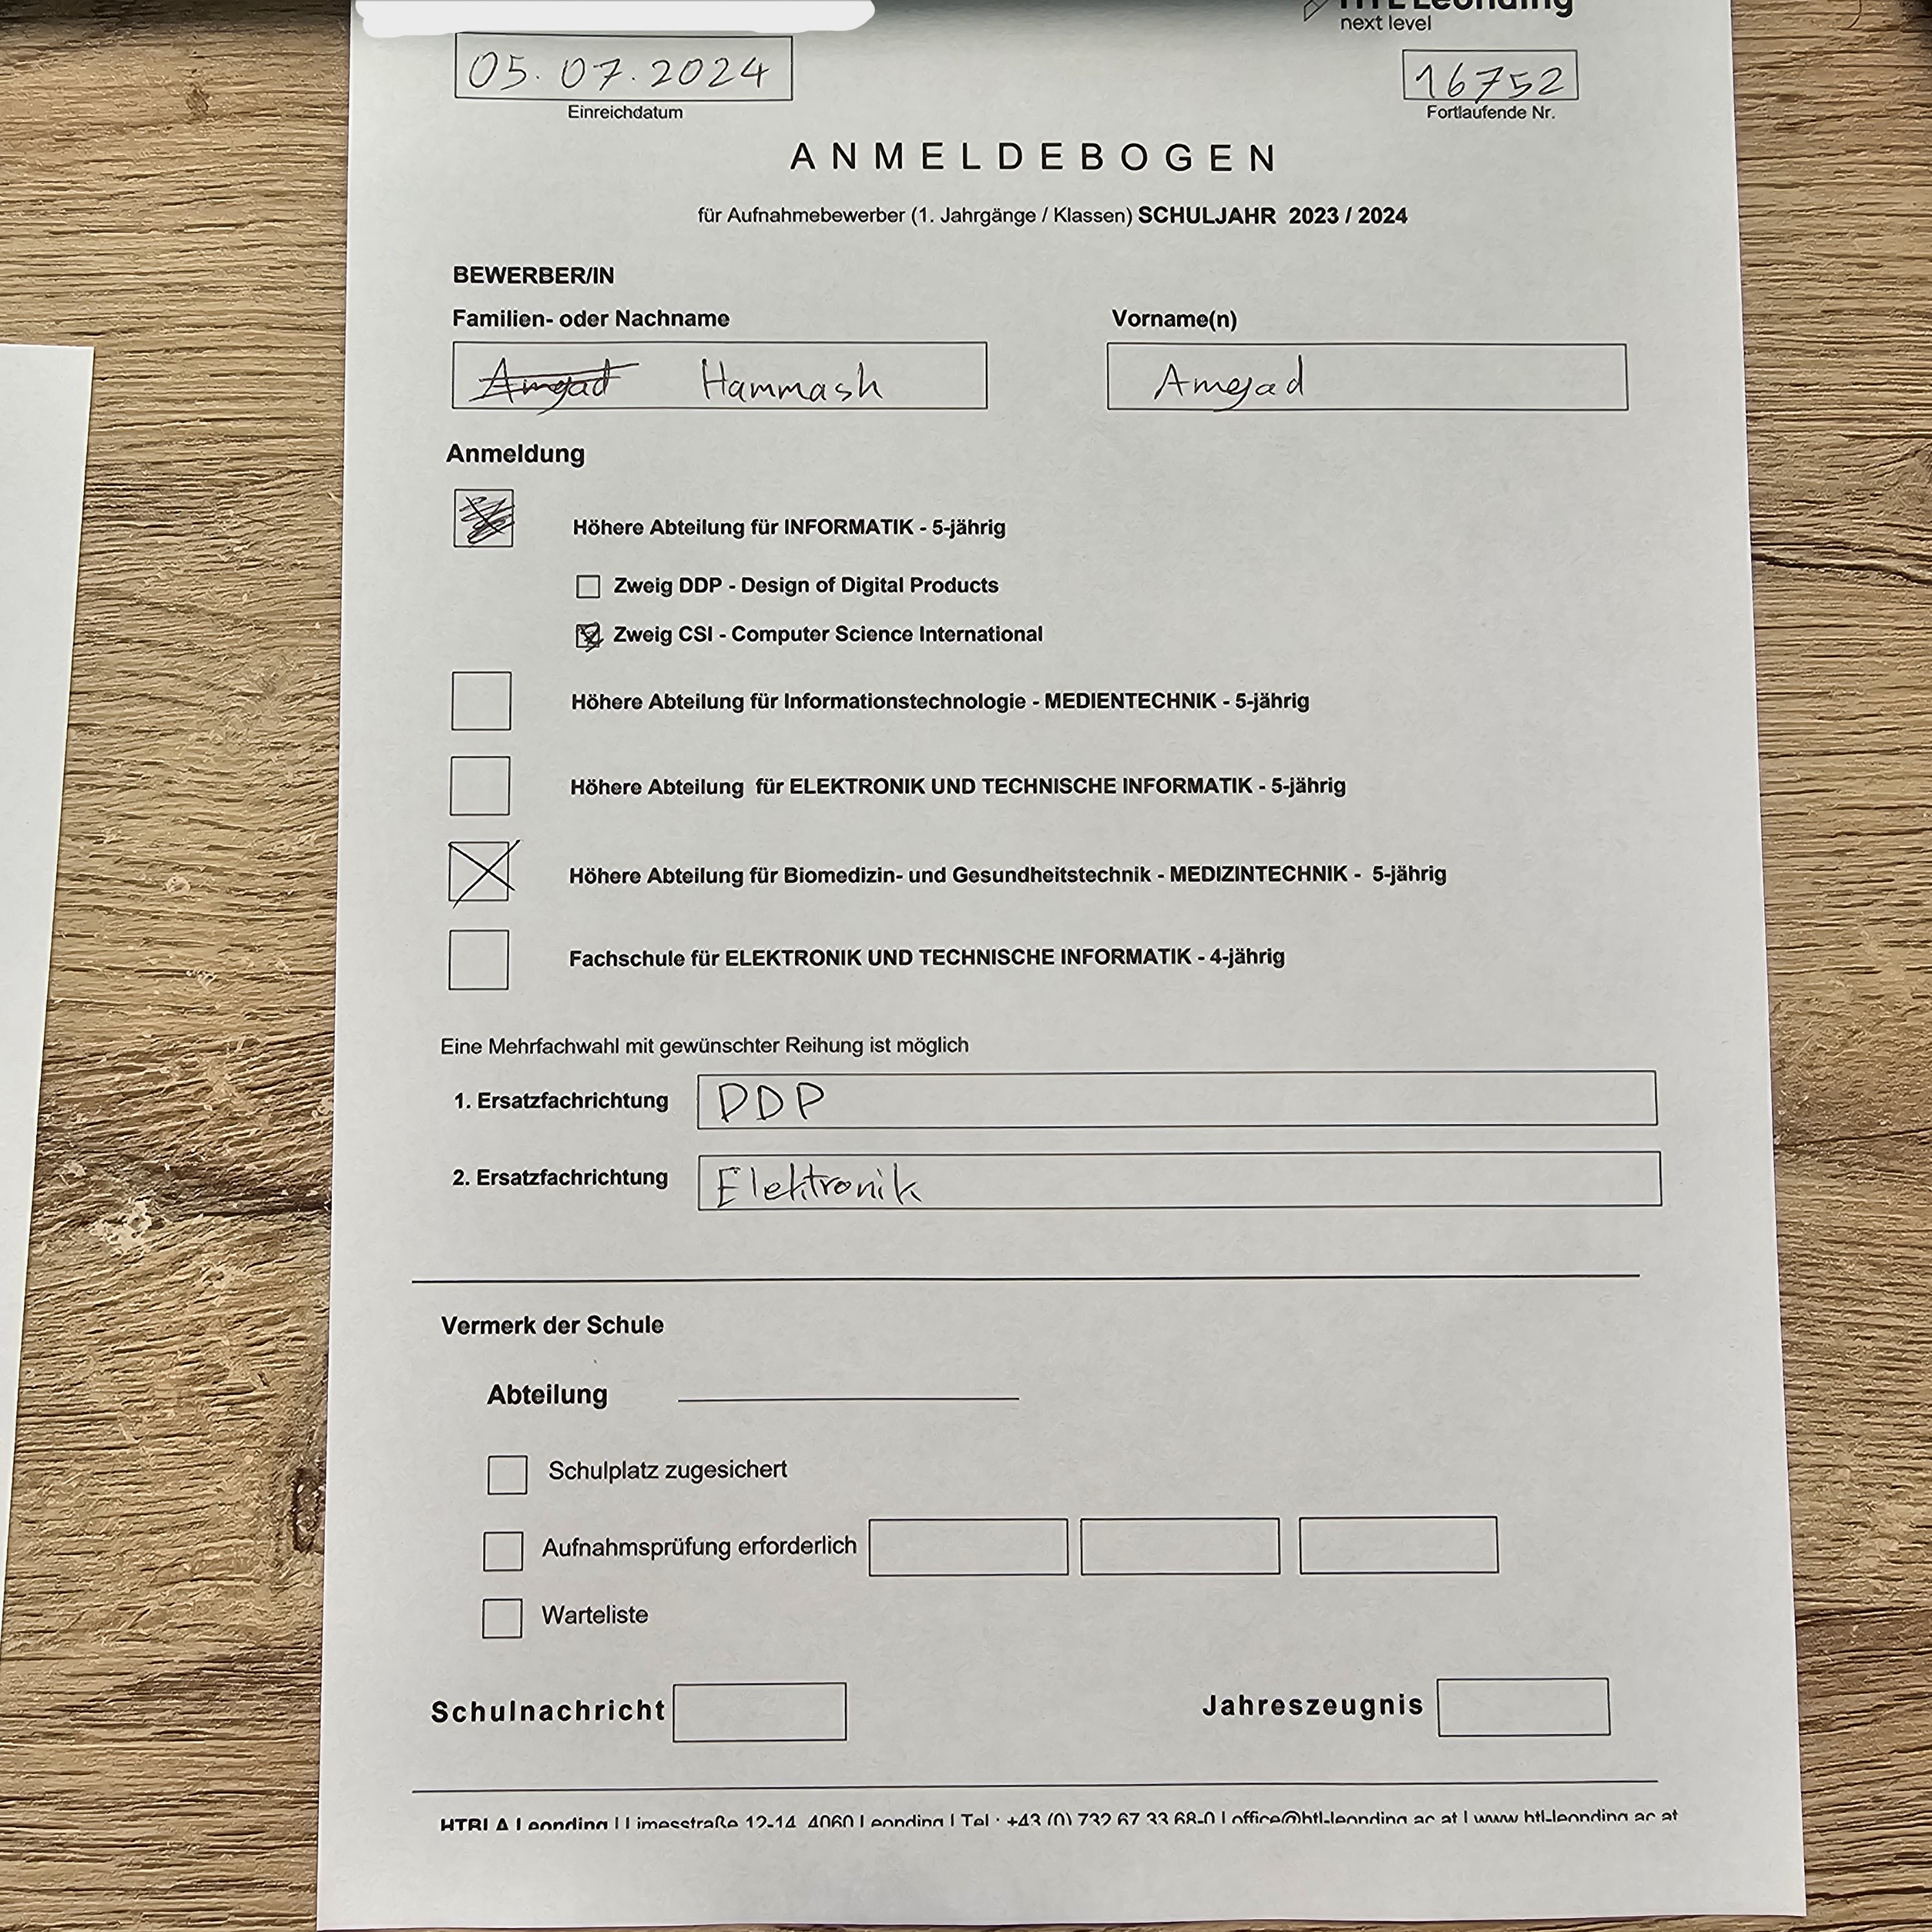 HTL Leonding
next level
05.07.2024 16752
Einreichdatum Fortlaufende Nr.
ANMELDEBOGEN
für Aufnahmebewerber (1. Jahrgänge / Klassen) SCHULJAHR 2023 / 2024
BEWERBER/IN
Familien- oder Nachname Vorname(n)
Amgad Hammash Amgad
Anmeldung
Höhere Abteilung für INFORMATIK - 5-jährig
Zweig DDP - Design of Digital Products
Zweig CSI - Computer Science International
Höhere Abteilung für Informationstechnologie - MEDIENTECHNIK - 5-jährig
Höhere Abteilung für ELEKTRONIK UND TECHNISCHE INFORMATIK - 5-jährig
Höhere Abteilung für Biomedizin- und Gesundheitstechnik - MEDIZINTECHNIK - 5-jährig
Fachschule für ELEKTRONIK UND TECHNISCHE INFORMATIK - 4-jährig
Eine Mehrfachwahl mit gewünschter Reihung ist möglich
1. Ersatzfachrichtung DDP
2. Ersatzfachrichtung Elektronik
Vermerk der Schule
Abteilung
Schulplatz zugesichert
Aufnahmsprüfung erforderlich
Warteliste
Schulnachricht Jahreszeugnis
HTBLA Leonding | Limesstraße 12-14, 4060 Leonding | Tel.: +43 (0) 732 67 33 68-0 | office@htl-leonding.ac.at | www.htl-leonding.ac.at